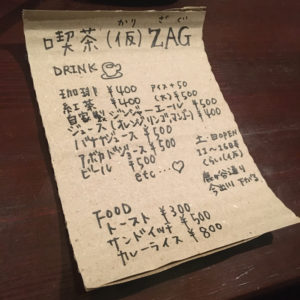 かり ざぐ
喫茶(仮) ZAG
DRINK
珈琲 ¥400 アイス+50
紅茶 ¥400 (氷) ¥500
自家製ジンジャーエール ¥500
ジュース(オレンジ、リンゴ、マンゴー) ¥400
バナナジュース ¥500
アボカドジュース ¥500
ビール ¥500
etc...♡
土・日OPEN
12~26時
くらい(仮)
今出川 下がる
FOOD
トースト ¥300
サンドイッチ ¥500
カレーライス ¥800